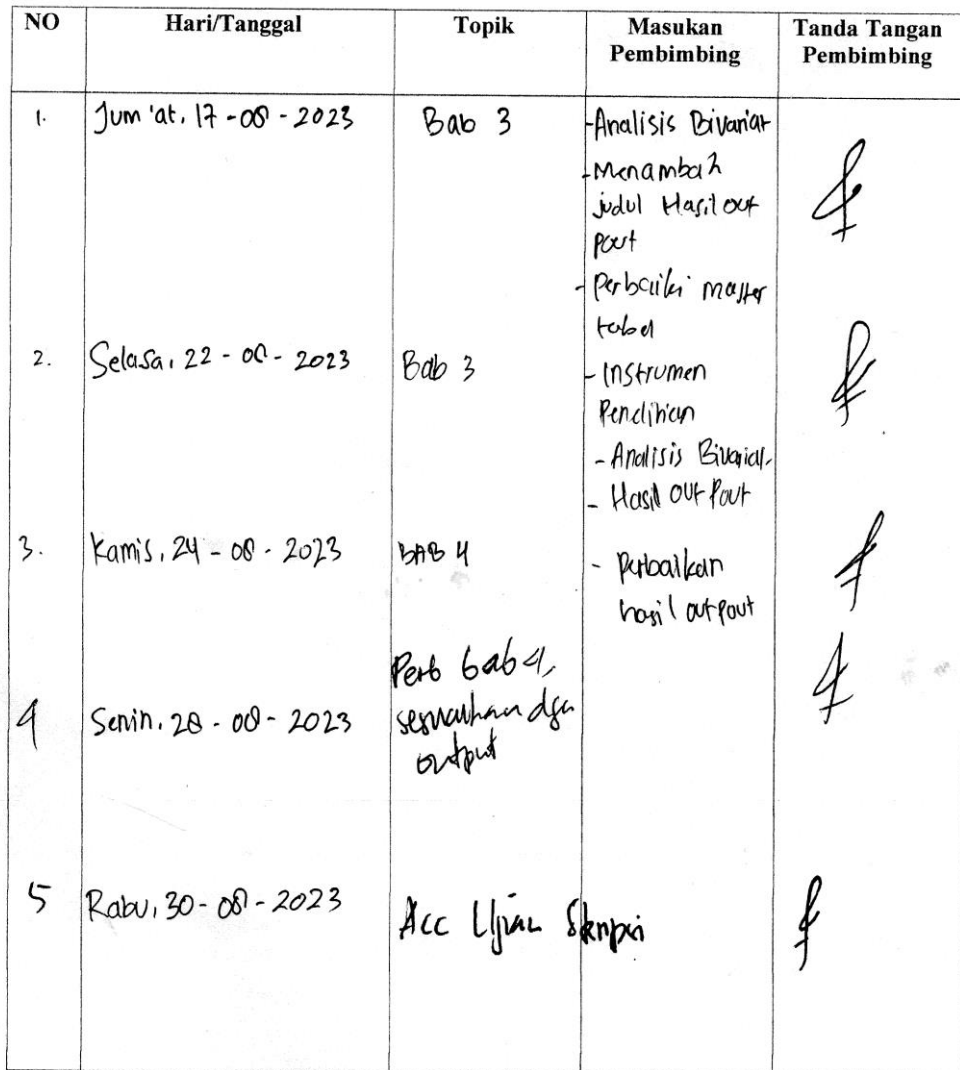 NO Hari/Tanggal Topik Masukan Pembimbing Tanda Tangan Pembimbing
1. Jum'at, 17-08-2023 Bab 3 -Analisis Bivariat
-Menambah
judul Hasil out
pout
- Perbaiki master
tabel
2. Selasa, 22-08-2023 Bab 3 - Instrumen
Penelitian
- Analisis Bivariat
- Hasil out pout
3. Kamis, 24-08-2023 BAB 4 - Perbaikan
hasil outpout
4 Senin, 28-08-2023 Perb bab 4,
sesuaikan dgn
output
5 Rabu, 30-08-2023 Acc Ujian Skripsi